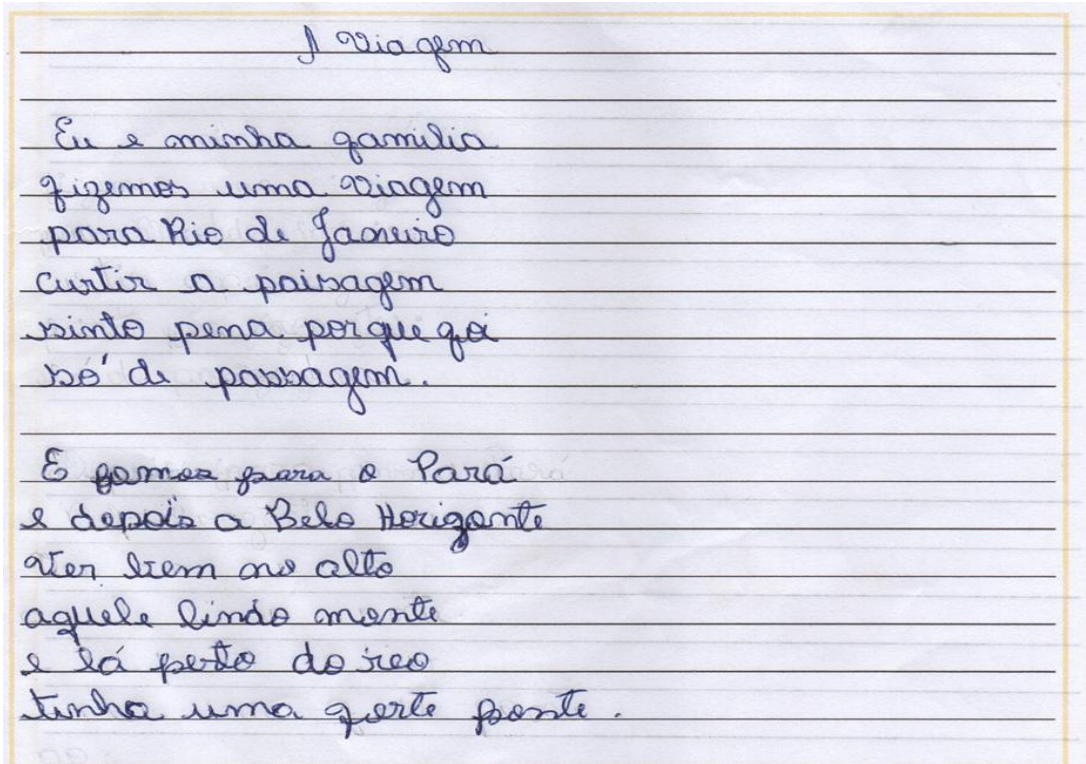 A Viagem
Eu e minha familia
fizemos uma Viagem
para Rio de Janeiro
curtir a paisagem
sinto pena porque foi
só de passagem.
E fomos para o Pará
e depois a Belo Horizonte
ver bem no alto
aquele lindo monte
e lá perto do rio
tinha uma forte ponte.